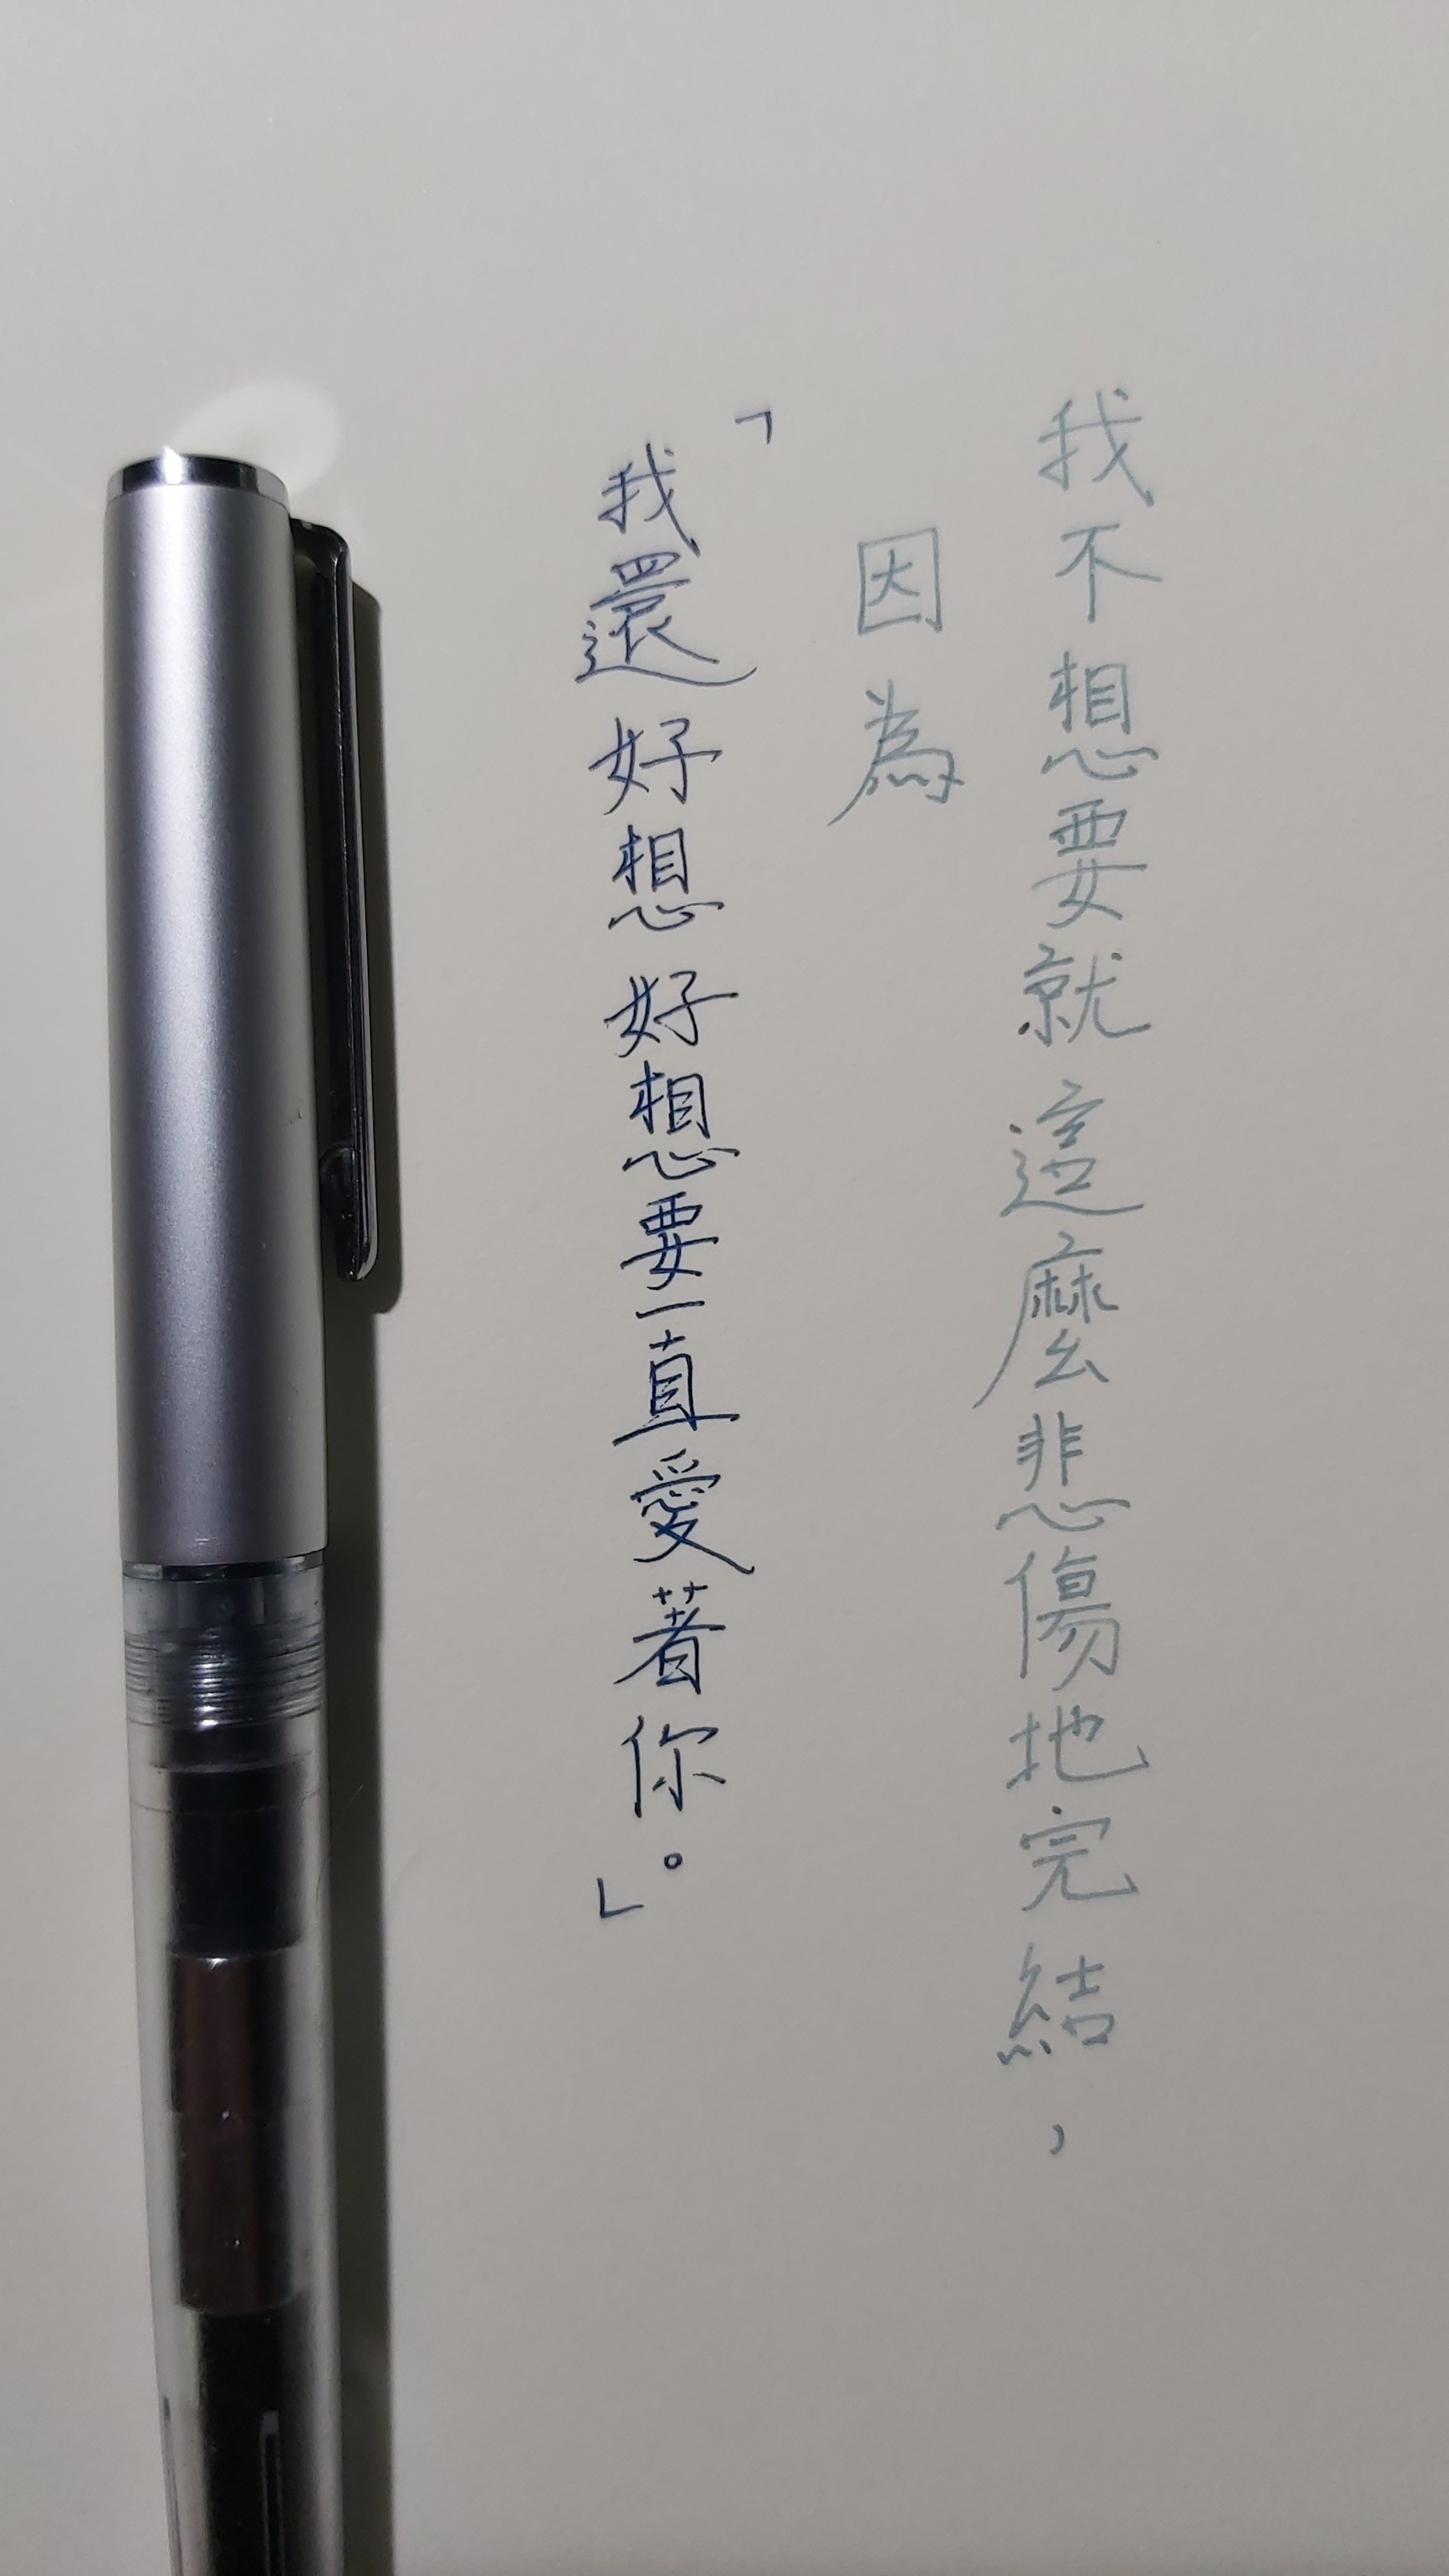 我不想要就這麼悲傷地完結，
因為
「我還好想好想要一直愛著你。」